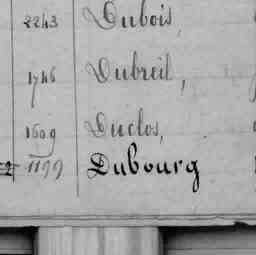 2243 Dubois,
1746 Dubreil,
1609 Duclos,
1199 Dubourg